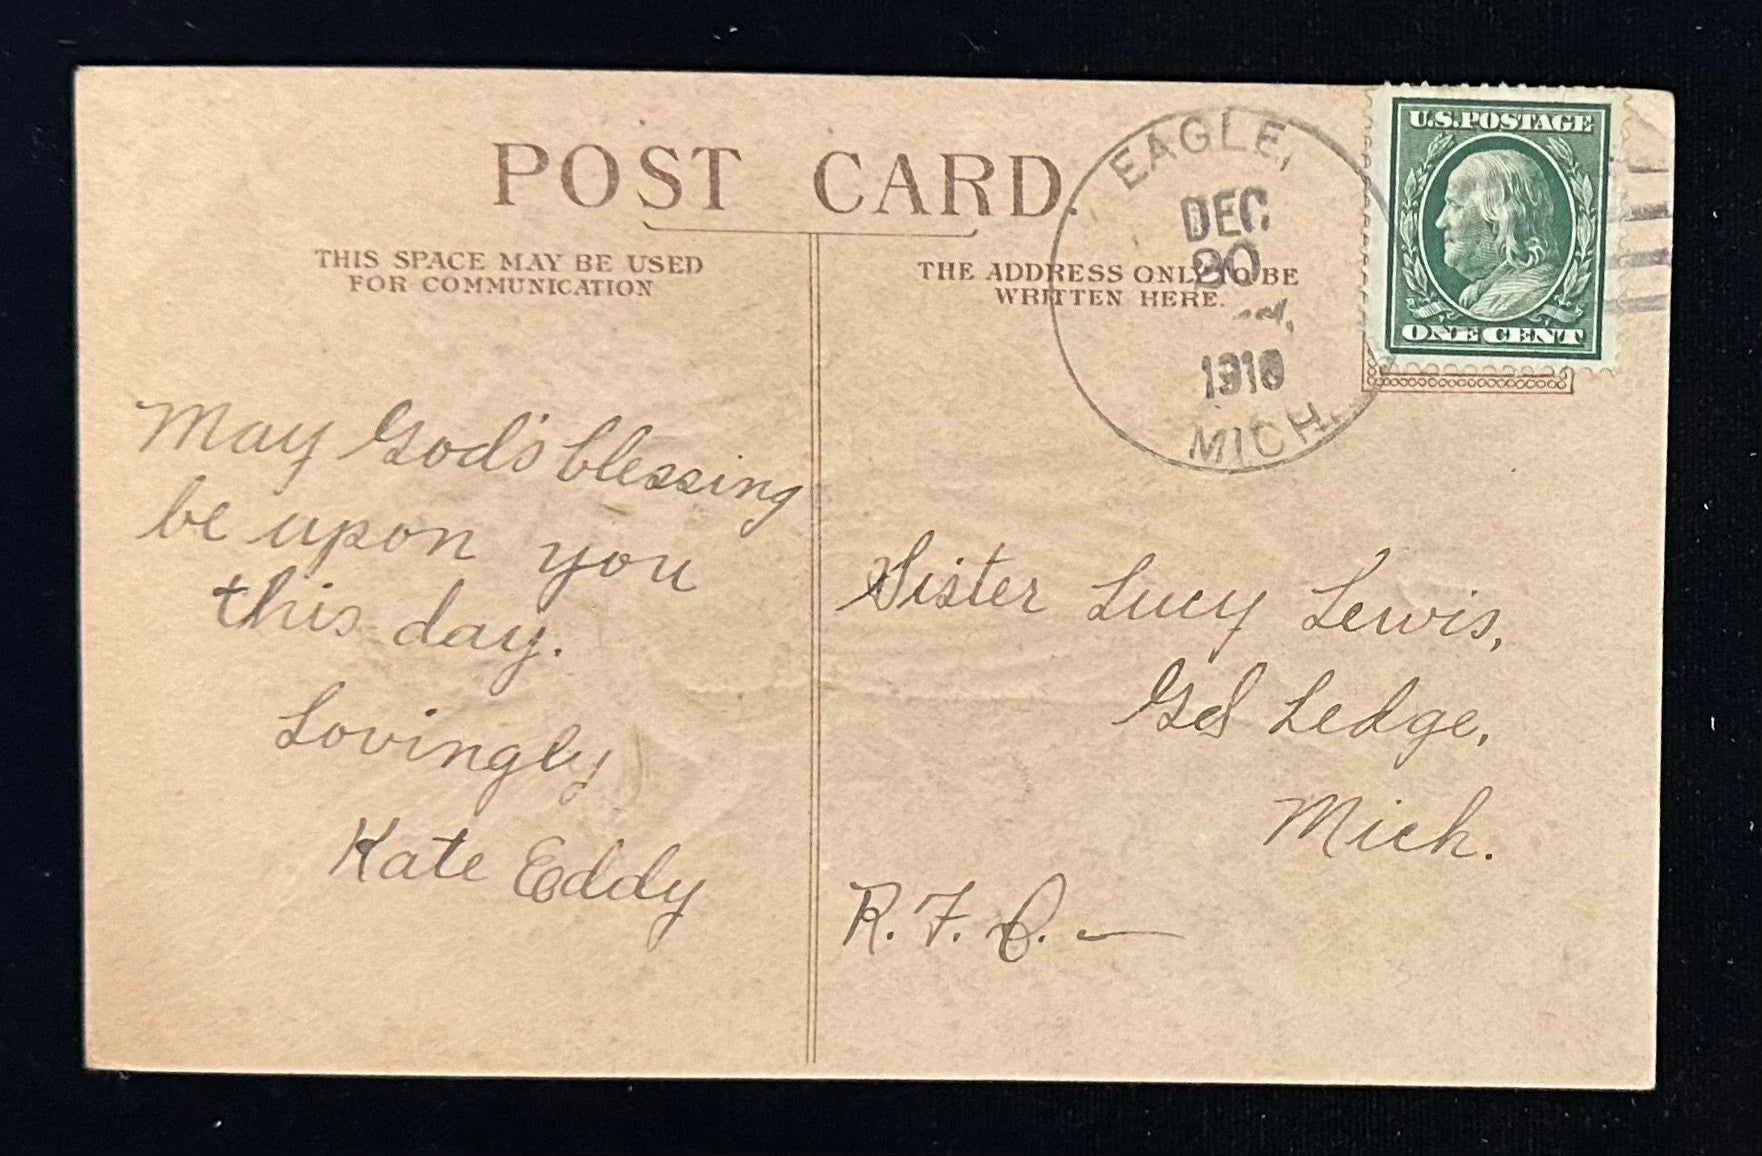 POST CARD.
THIS SPACE MAY BE USED
FOR COMMUNICATION
THE ADDRESS ONLY TO BE
WRITTEN HERE.
EAGLE,
DEC
20
1910
MICH.
U.S. POSTAGE
ONE CENT
May God's blessing
be upon you
this day.
Lovingly
Kate Eddy
Sister Lucy Lewis,
Gd Ledge,
Mich.
R. F. D. —